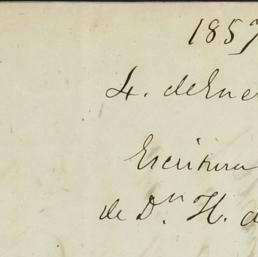 1857
4. de Ene
Escritura
de Dⁿ H. d